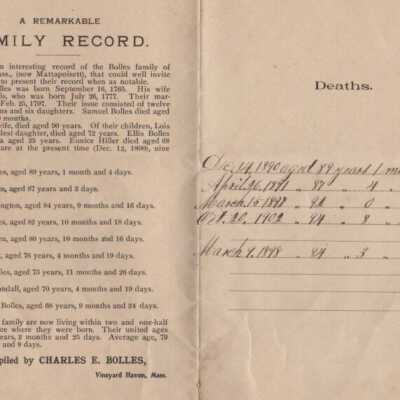 A REMARKABLE
MILY RECORD.
n interesting record of the Bolles family of
ass., (now Mattapoisett), that could well invite
to present their record when as notable.
lles was born September 16, 1765. His wife
is, who was born July 26, 1777. Their mar-
Feb. 25, 1797. Their issue consisted of twelve
ns and six daughters. Samuel Bolles died aged
0 months.
wife, died aged 90 years. Of their children, Lois
dest daughter, died aged 72 years. Ellis Bolles
a aged 25 years. Eunice Hiller died aged 69
are at the present time (Dec. 12, 1890), nine
es, aged 89 years, 1 month and 4 days.
es, aged 87 years and 3 days.
ington, aged 84 years, 9 months and 16 days.
les, aged 82 years, 10 months and 18 days.
en, aged 80 years, 10 months and 16 days.
, aged 76 years, 4 months and 19 days.
lles, aged 73 years, 11 months and 26 days.
ndall, aged 70 years, 4 months and 19 days.
Bolles, aged 68 years, 9 months and 24 days.
family are now living within two and one-half
ce where they were born. Their united ages
ears, 2 months and 25 days. Average age, 79
and 9 days.
piled by CHARLES E. BOLLES,
Vineyard Haven, Mass.
Deaths.
Dec. 14, 1890 aged 89 years 1 mo
April 26, 1891 " 87 " 4 "
March 15, 1898 " 92 " 0 "
Oct. 20, 1902 " 94 " 8 "
March 9, 1898 " 84 " 3 "